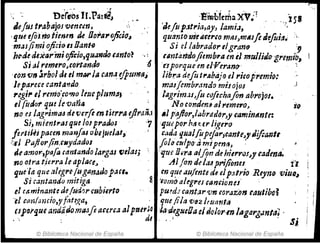 Defeos II. Parte,
de sus trabajos vencen,
que esos no tienen de llorar oficio,
mas si mi oficio es llanto
he de dexar mi oficio, quando canto?
Si al remero, cortando 6
con vn arbol de el mar la cana espuma,
le parece cantando
regir el remo como leue pluma,
el sudor que le vaña
no es lagrimas de verse en tierra estraña
Si, mientras que los prados 7
fertiles pacen mansas obejuelas,
el Pastor sin cuydados
de amor, passa cantando largas velas;
no otra tierra le aplace,
que la que alegre su ganado pace.
Si cantando mitiga 8
el caminante de sudor cubierto
el cansancio, y fatiga,
es porque andando mas se acerca al puerto
de
Emblema XV. 158
de su patria, ay, lamia,
quanto me acerco mas, mas se desuia.
Si el labrador el grano 9
cantando siembra en el mullido gremio,
es porque en el Verano
libra de su trabajo el rico premio:
mas sembrando mis ojos
lagrimas, su cosecha son abrojos.
No condena al remero, 10
al pastor, labrador, y caminante:
que por hazer ligero
cada qual su pesar, cante, y discante
solo culpo à mi pena,
que llora al son de hierros, y cadena.
Al son de las prisiones 11
en que ausente de el patrio Reyno viuo,
como alegres canciones
puedo cantar vn corazon cautiuo?
que si la voz leuanta
la deguella el dolor en la garganta.
Si
© Biblioteca Nacional de España
© Biblioteca Nacional de España